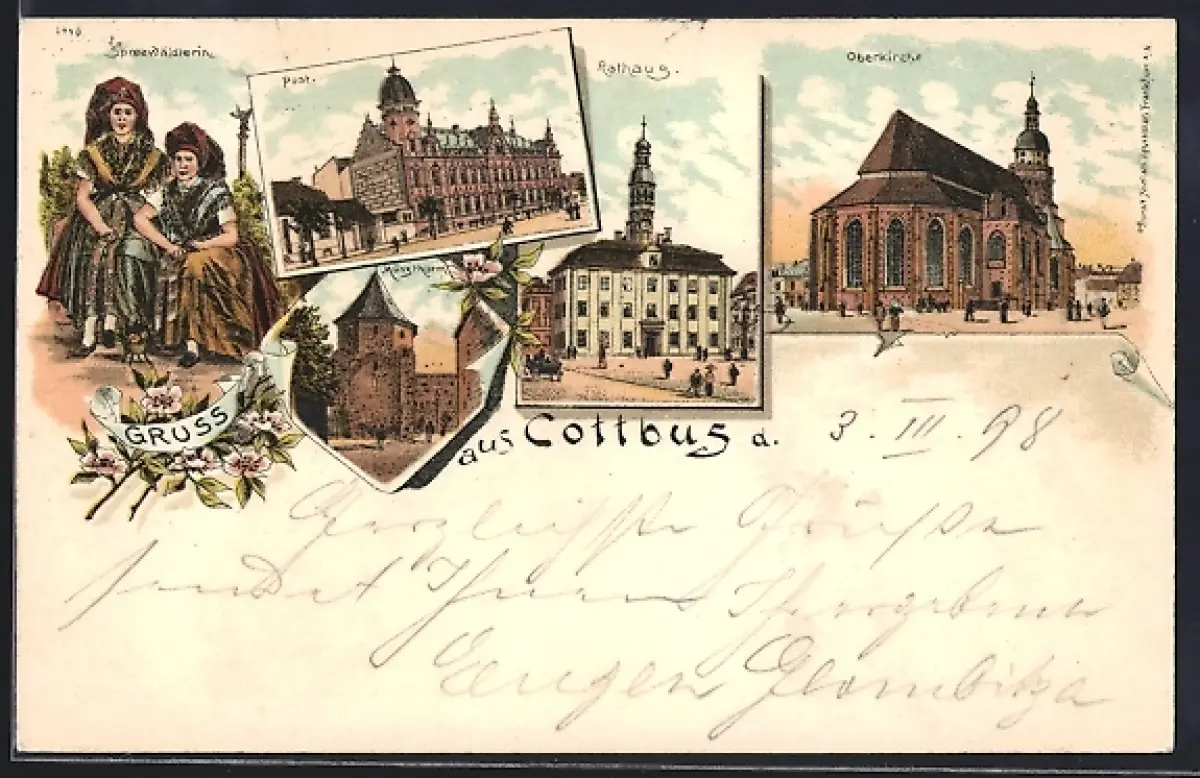 1448
Spreewäldlerin
Post.
Rathaus.
Oberkirche
Münzthurm
GRUSS
aus Cottbus d. 3. III. 98
Herzlichste Grüsse
sendet Ihnen Ihr ergebener
Eugen Glombitza